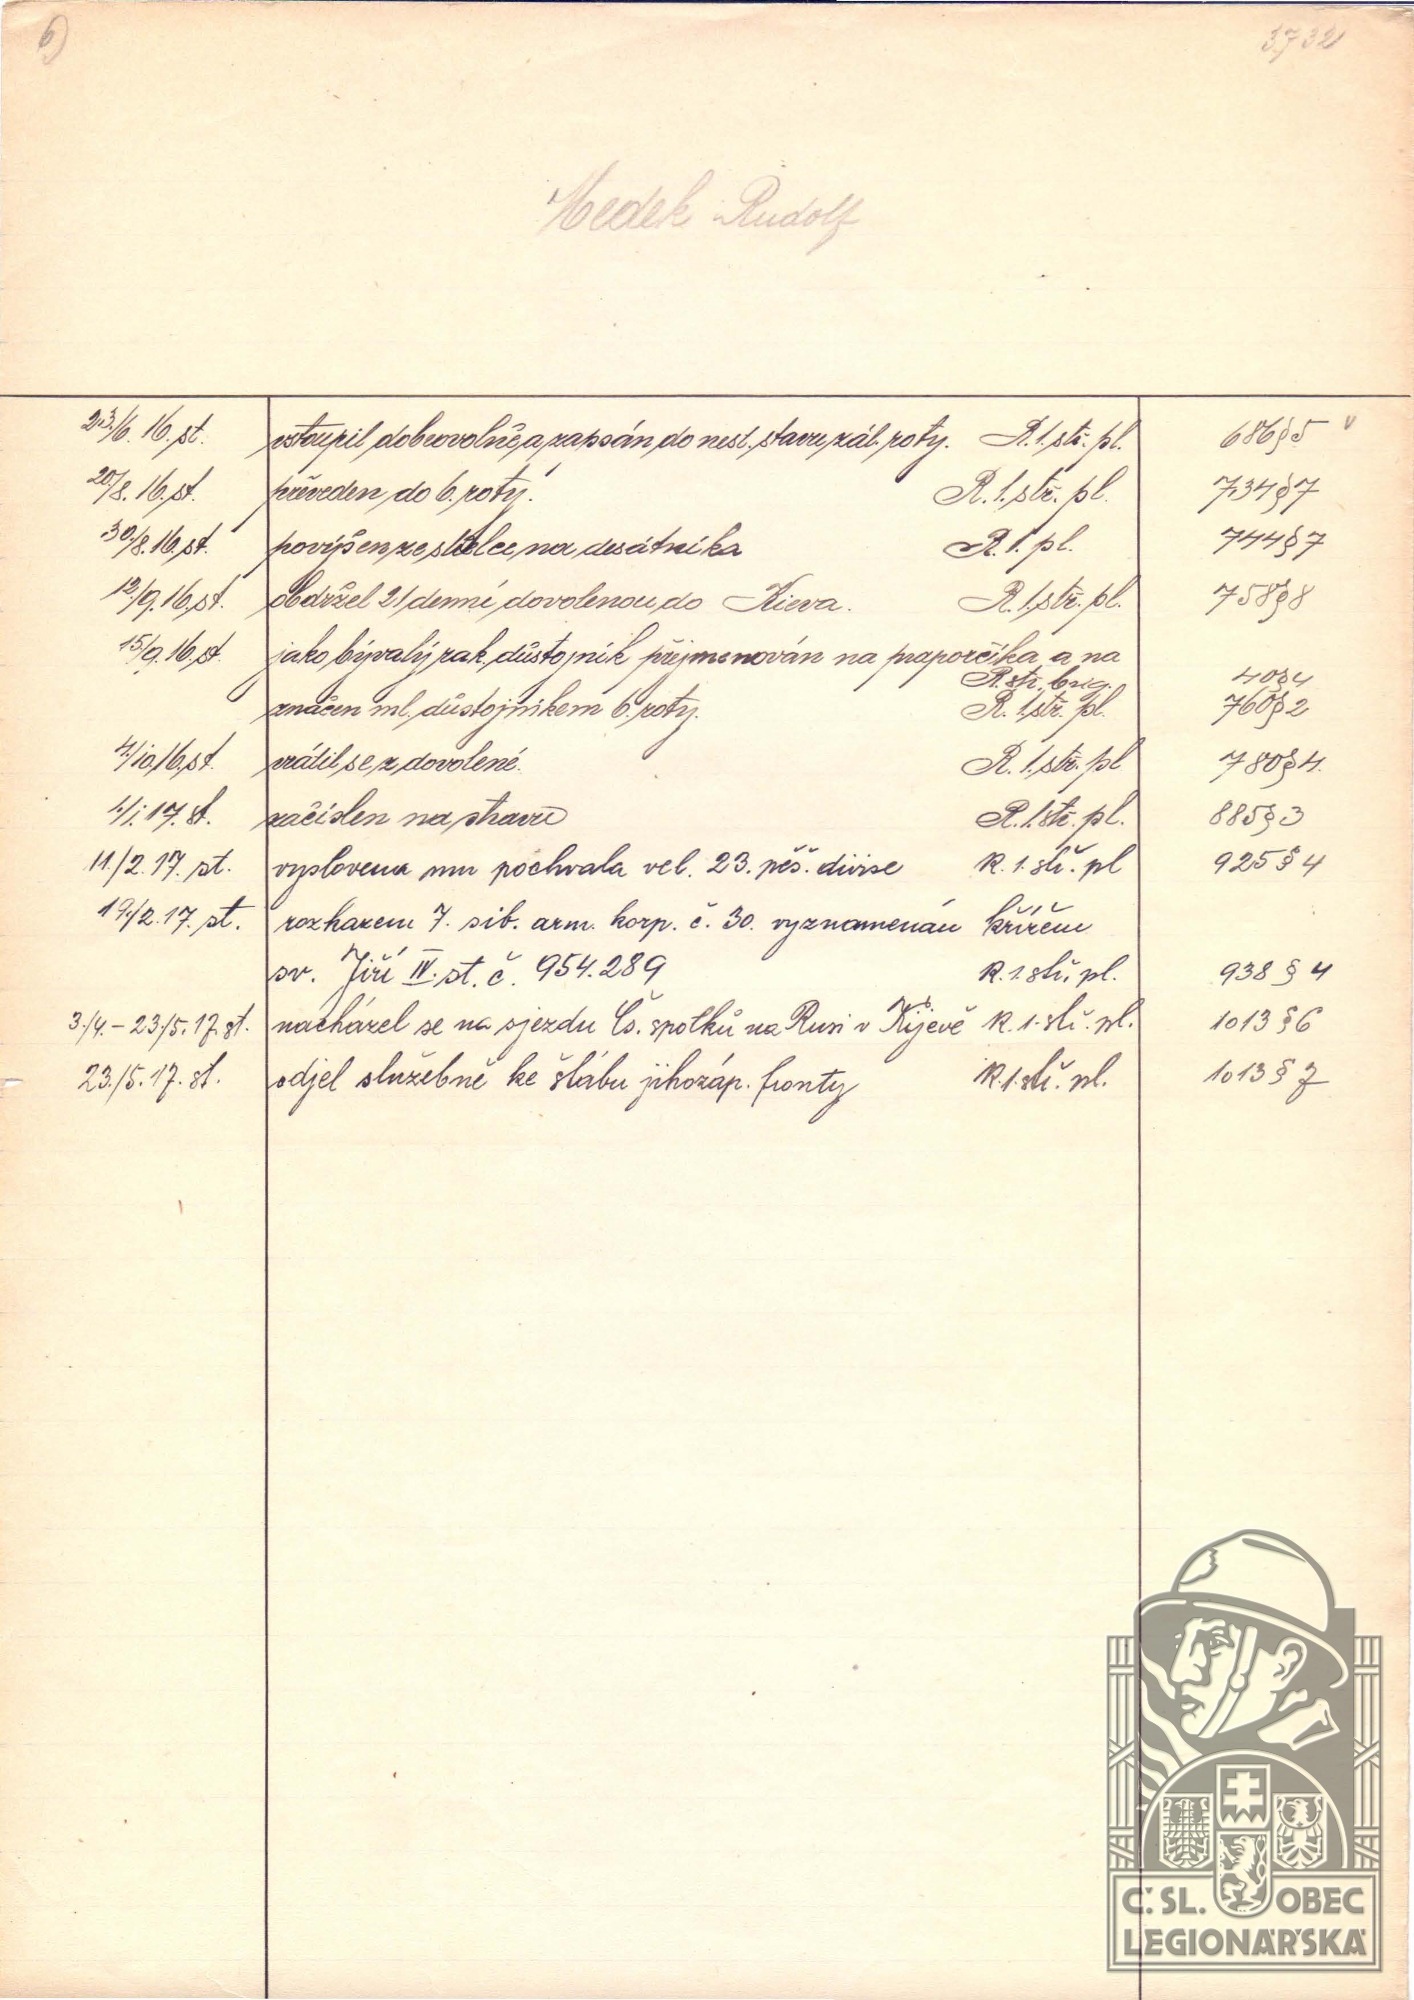 6)
3732
Medek Rudolf
23./6. 16. st. vstoupil dobrovolně a zapsán do nest. stavu zál. roty. R. 1. stř. pl. 686 § 5 v
20./8. 16. st. převeden do 6. roty. R. 1. stř. pl. 734 § 7
30./8. 16. st. povýšen ze střelce na desátníka R. 1. pl. 744 § 7
12./9. 16. st. obdržel 21 denní dovolenou do Kieva. R. 1. stř. pl. 758 § 8
15./9. 16. st. jako bývalý rak. důstojník přejmenován na praporčíka a na
R. stř. brig. 40 § 4
značen ml. důstojníkem 6. roty. R. 1. stř. pl. 760 § 2
4./10. 16. st. vrátil se z dovolené. R. 1. stř. pl 780 § 4.
4./1. 17. st. začislen na stravu R. 1. stř. pl. 885 § 3
11./2. 17. st. vyslovena mu pochvala vel. 23. pěš. divise R. 1. stř. pl 925 § 4
19./2. 17. st. rozkazem 7. sib. arm. korp. č. 30. vyznamenán křížem
sv. Jiří IV. st. č. 954.289 R. 1. stř. pl. 938 § 4
3./4. - 23./5. 17. st. nacházel se na sjezdu Čs. spolků na Rusi v Kijevě R. 1. stř. pl. 1013 § 6
23./5. 17. st. odjel služebně ke štábu jihozáp. fronty R. 1. stř. pl. 1013 § 7
Č. SL. OBEC
LEGIONÁŘSKÁ